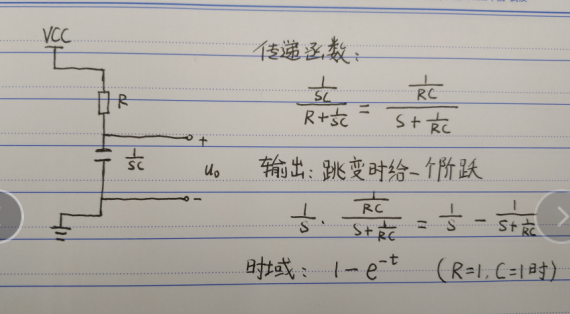 VCC
R
+
1/SC
u₀
-
传递函数:
(1/SC)/(R+1/SC) = (1/RC)/(S+1/RC)
输出: 跳变时给一个阶跃
1/S · (1/RC)/(S+1/RC) = 1/S - 1/(S+1/RC)
时域: 1-e^-t (R=1, C=1时)